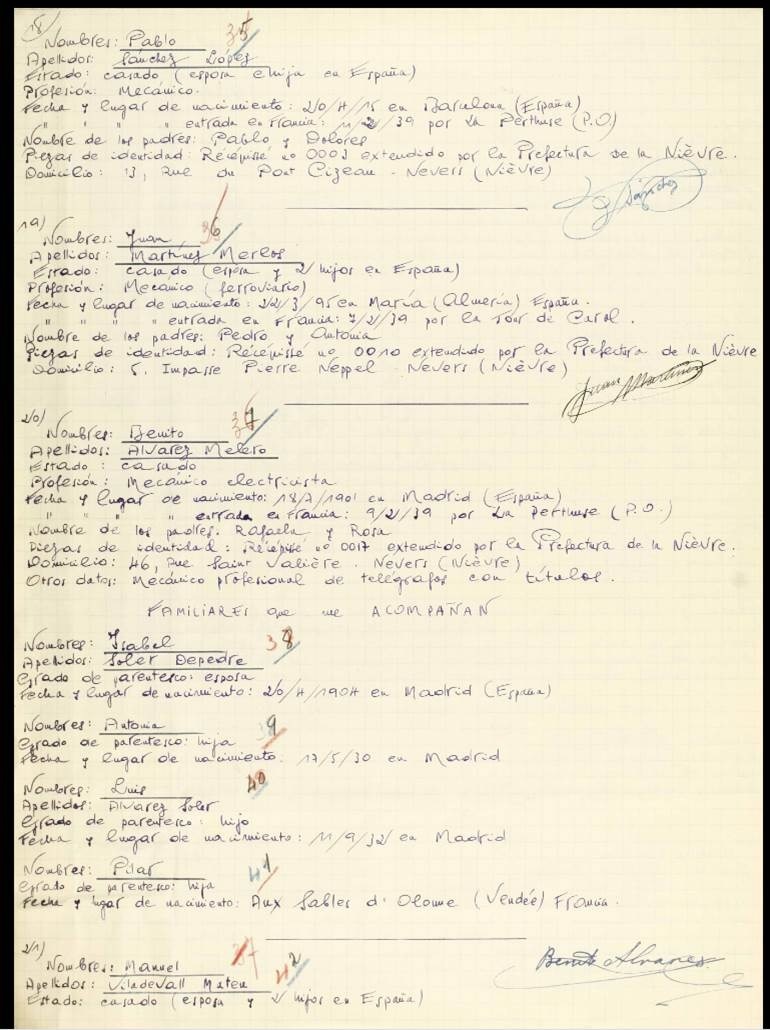 18)
Nombres: Pablo 35
Apellidos: Sánchez López
Estado: casado (esposa e hija en España)
Profesión: Mecánico.
Fecha y lugar de nacimiento: 20/4/15 en Barcelona (España)
" " " " entrada en Francia: 11/2/39 por La Perthuse (P.O)
Nombre de los padres: Pablo y Dolores
Piezas de identidad: Récépissé nº 0003 extendido por la Prefectura de la Nièvre.
Domicilio: 13, Rue du Pont Cizeau - Nevers (Nièvre)
Sánchez
19)
Nombres: Juan 36
Apellidos: Martínez Merlos
Estado: casado (esposa y 2 hijos en España)
Profesión: Mecánico (ferroviario)
Fecha y lugar de nacimiento: 22/3/95 en María (Almería) España.
" " " " entrada en Francia: 7/2/39 por la Tour de Carol.
Nombre de los padres: Pedro y Antonia
Piezas de identidad: Récépissé nº 0010 extendido por la Prefectura de la Nièvre
Domicilio: 5. Impasse Pierre Neppel - Nevers (Nièvre)
Juan Martínez
20)
Nombres: Benito 37
Apellidos: Alvarez Melero
Estado: casado
Profesión: Mecánico electricista
Fecha y lugar de nacimiento: 18/7/1901 en Madrid (España)
" " " " entrada en Francia: 9/2/39 por La Perthuse (P.O.)
Nombre de los padres: Rafaela y Rosa
Piezas de identidad: Récépissé nº 0017 extendido por la Prefectura de la Nièvre.
Domicilio: 46, Rue Saint Valière - Nevers (Nièvre)
Otros datos: Mecánico profesional de telégrafos con títulos.
FAMILIARES que me ACOMPAÑAN
Nombres: Isabel 38
Apellidos: Soler Depedre
Grado de parentesco: esposa
Fecha y lugar de nacimiento: 20/4/1904 en Madrid (España)
Nombres: Antonia 39
Grado de parentesco: hija
Fecha y lugar de nacimiento: 17/5/30 en Madrid
Nombres: Luis 40
Apellidos: Alvarez Soler
Grado de parentesco: hijo
Fecha y lugar de nacimiento: 11/9/32 en Madrid
Nombres: Pilar 41
Grado de parentesco: hija
Fecha y lugar de nacimiento: Aux Sables d'Olonne (Vendée) Francia.
Benito Alvarez
21)
Nombres: Manuel 37 42
Apellidos: Viladevall Mateu
Estado: casado (esposa y 2 hijos en España)